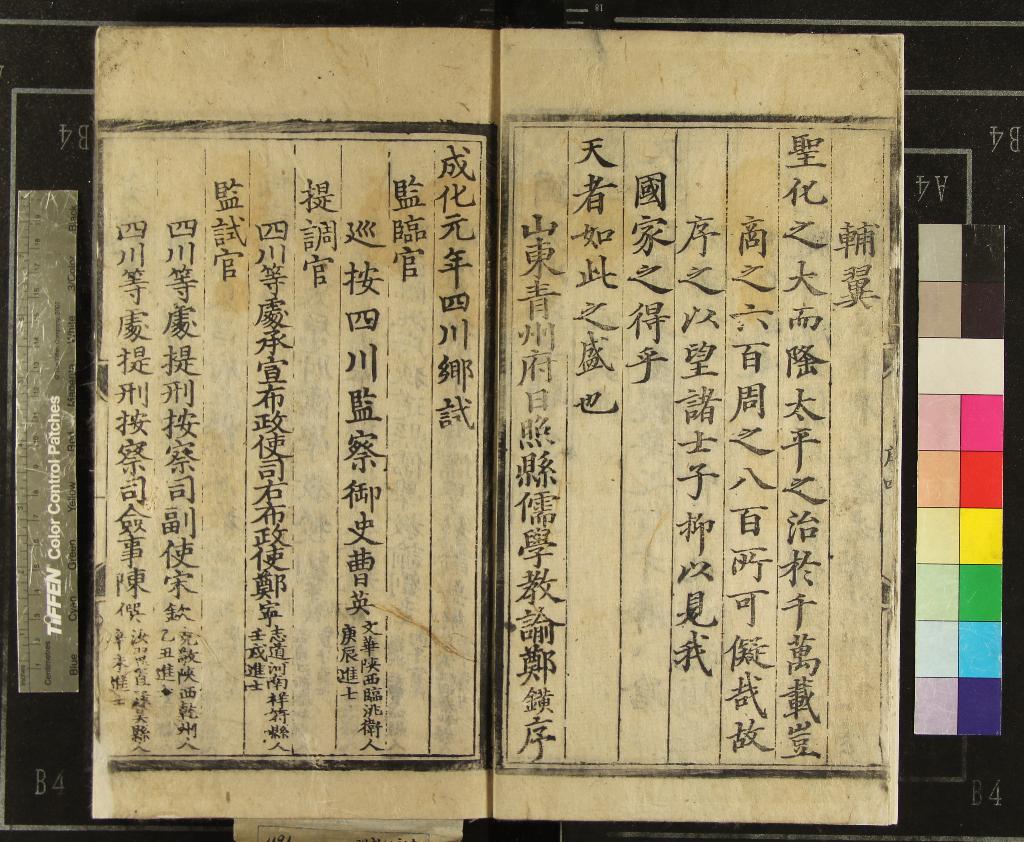 輔翼
聖化之大而隆太平之治於千萬載豈
商之六百周之八百所可儗哉故
序之以望諸士子抑以見我
國家之得乎
天者如此之盛也
山東青州府日照縣儒學教諭鄭鐄序
成化元年四川鄉試
監臨官
巡按四川監察御史曹英 文華陝西臨洮衛人
庚辰進士
提調官
四川等處承宣布政使司右布政使鄭寧 志道河南祥符縣人
壬戌進士
監試官
四川等處提刑按察司副使宋欽 克敬陝西乾州人
乙丑進士
四川等處提刑按察司僉事陳 縣人
辛未進士
TIFFEN Color Control Patches
Blue
Cyan
Green
Yellow
Red
Magenta
White
3/Color
Black
B4
B4
B4
B4
A4
18